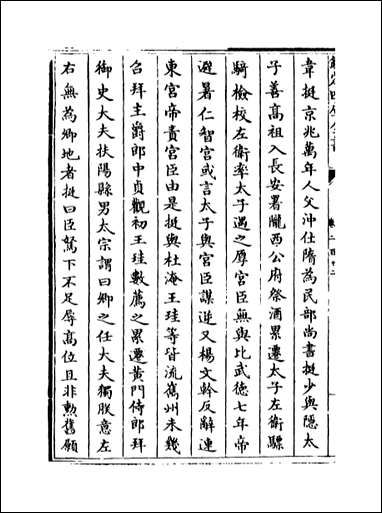 韋挺京兆萬年人父沖仕隋為民部尚書挺少與隱太
子善高祖入長安署隴西公府祭酒累遷太子左衛驃
騎檢校左衛率太子遇之厚宮臣無與比武德七年帝
避暑仁智宮或言太子與宮臣謀逆又楊文幹反辭連
東宮帝責宮臣由是挺與杜淹王珪等皆流嶲州未幾
召拜主爵郎中貞觀初王珪數薦之累遷黃門侍郎拜
御史大夫扶陽縣男太宗謂曰卿之任大夫獨朕意左
右無為卿地者挺曰臣駑下不足辱高位且非勲舊願